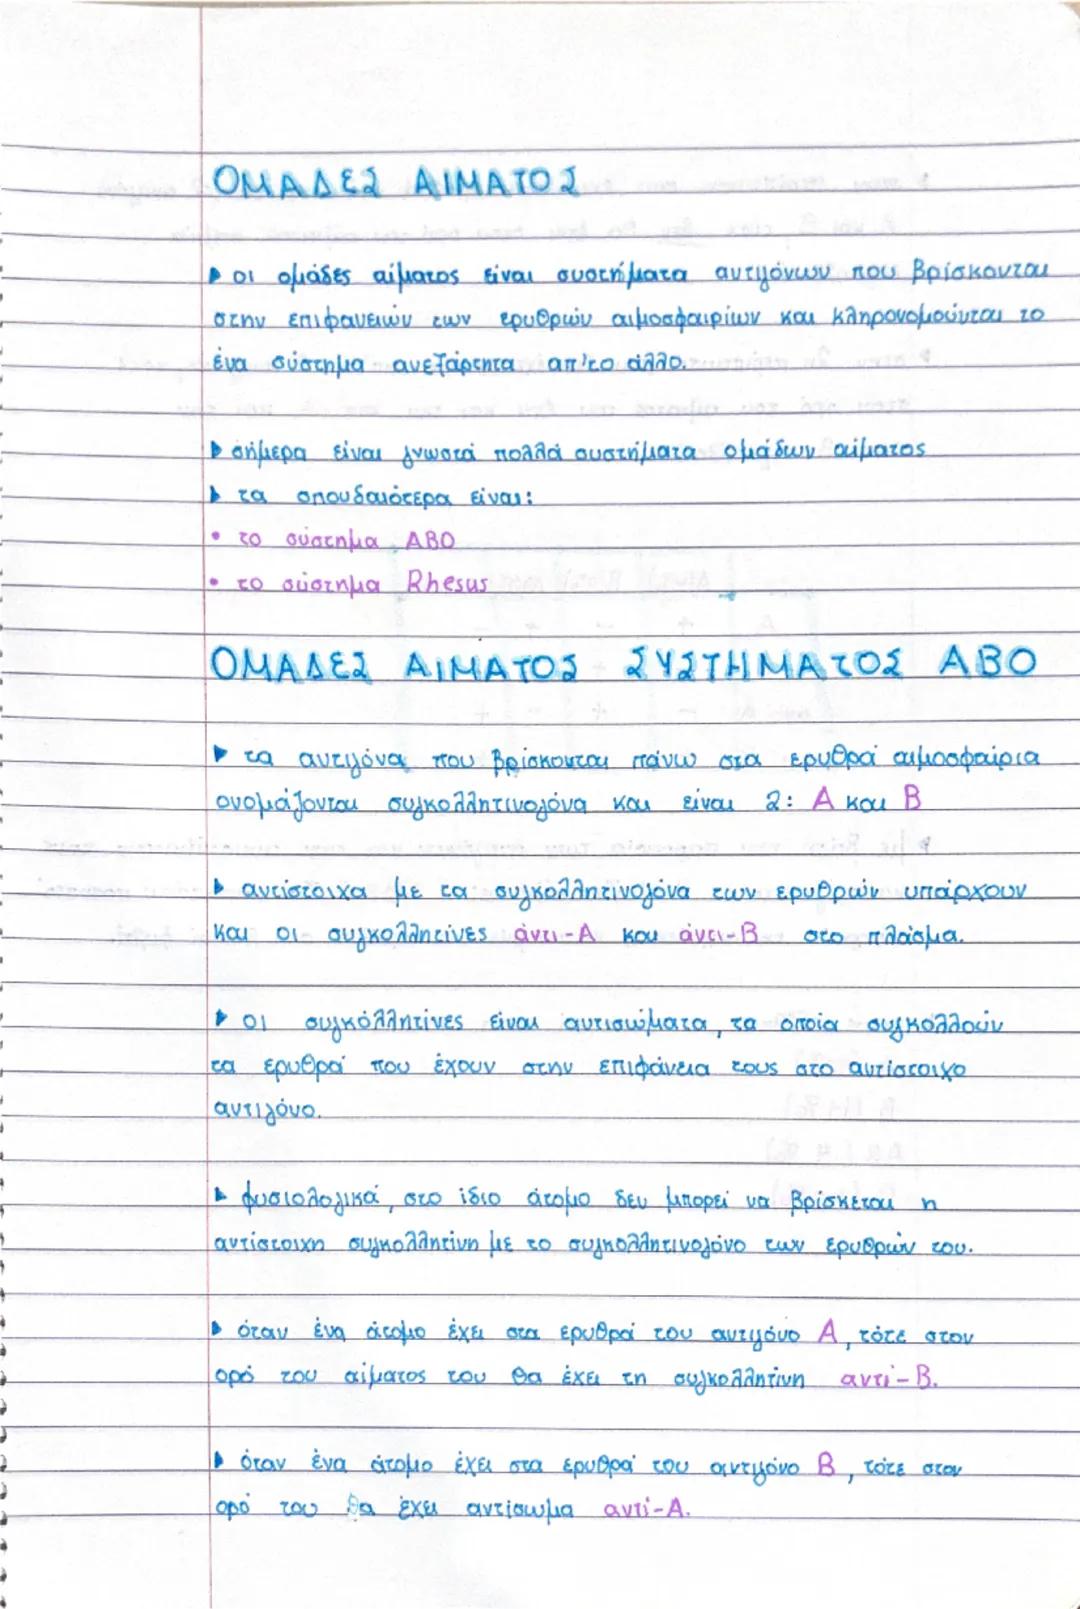 ΟΜΑΔΕΣ ΑΙΜΑΤΟΣ
▶ οι ομάδες αίματος είναι συστήματα αντιγόνων που βρίσκονται
στην επιφανειών των ερυθρών αιμοσφαιρίων και κληρονομούνται το
ένα σύστημα ανεξάρτητα απ'το άλλο.
▶ σήμερα είναι γνωστά πολλά συστήματα ομάδων αίματος
▶ τα σπουδαιότερα είναι:
• το σύστημα ABO
• το σύστημα Rhesus
ΟΜΑΔΕΣ ΑΙΜΑΤΟΣ ΣΥΣΤΗΜΑΤΟΣ ΑΒΟ
▶ τα αντιγόνα που βρίσκονται πάνω στα ερυθρά αιμοσφαίρια
ονομάζονται συγκολλητινογόνα και είναι 2: Α και Β
▶ αντίστοιχα με τα συγκολλητινογόνα των ερυθρών υπάρχουν
και οι συγκολλητίνες άντι-Α και άντι-Β στο πλάσμα.
▶ οι συγκόλλητίνες είναι αντισώματα, τα οποία συγκολλούν
τα ερυθρά που έχουν στην επιφάνεια τους στο αντίστοιχο
αντιγόνο.
▶ φυσιολογικά, στο ίδιο άτομο δεν μπορεί να βρίσκεται η
αντίστοιχη συγκολλητίνη με το συγκολλητινογόνο των ερυθρών του.
▶ όταν ένα άτομο έχει στα ερυθρά του αντιγόνο Α, τότε στον
ορό του αίματος του θα έχει τη συγκολλητίνη αντί-Β.
▶ όταν ένα άτομο έχει στα ερυθρά του αντιγόνο Β, τότε στον
ορό του θα έχει αντίσωμα αντί-Α.